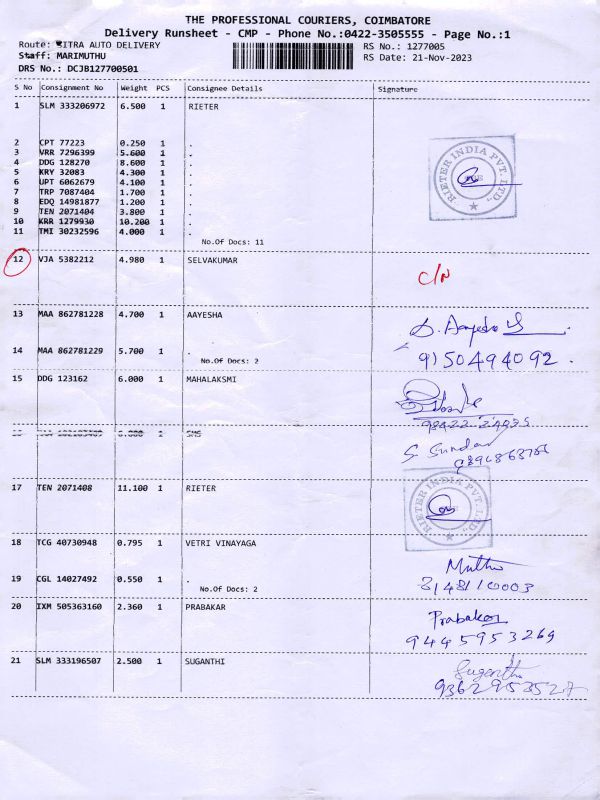 THE PROFESSIONAL COURIERS, COIMBATORE
Delivery Runsheet - CMP - Phone No.:0422-3505555 - Page No.:1
Route: SITRA AUTO DELIVERY RS No.: 1277005
Staff: MARIMUTHU RS Date: 21-Nov-2023
DRS No.: DCJB127700501
S No Consignment No Weight PCS Consignee Details Signature
1 SLM 333206972 6.500 1 RIETER
2 CPT 77223 0.250 1 .
3 VRR 7296399 5.600 1 .
4 DDG 128270 8.600 1 .
5 KRY 32083 4.300 1 .
6 UPT 6062679 4.100 1 .
7 TRP 7087404 1.700 1 .
8 EDQ 14981877 1.200 1 .
9 TEN 2071404 3.800 1 .
10 KRR 1279930 10.200 1 .
11 TMI 30232596 4.000 1 .
No.Of Docs: 11
RIETER INDIA PVT. LTD.,
12 VJA 5382212 4.980 1 SELVAKUMAR C/N
13 MAA 862781228 4.700 1 AAYESHA
14 MAA 862781229 5.700 1 . 9150494092.
No.Of Docs: 2
15 DDG 123162 6.000 1 MAHALAKSMI
SMS
S. Sundar
17 TEN 2071408 11.100 1 RIETER
RIETER INDIA PVT. LTD.,
18 TCG 40730948 0.795 1 VETRI VINAYAGA
Muthu
19 CGL 14027492 0.550 1 .
No.Of Docs: 2
20 IXM 505363160 2.360 1 PRABAKAR Prabakar
9445953269
21 SLM 333196507 2.500 1 SUGANTHI Suganthi
9362953527